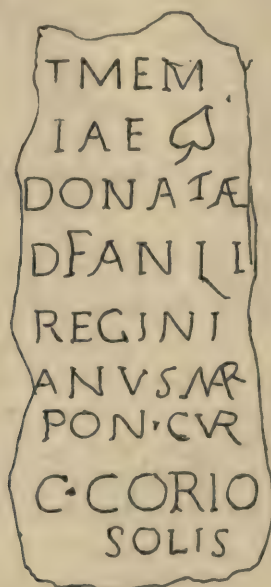 TMEM
IAE
DONATÆ
DFANLI
REGINI
ANVSMAR
PON·CVR
C·CORIO
SOLIS